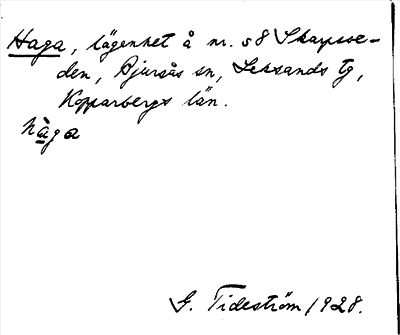 Haga, lägenhet å nr. 58 Skarpsve-
den, Bjursås sn, Leksands tg,
Kopparbergs län.
hàga
G. Tideström 1928.